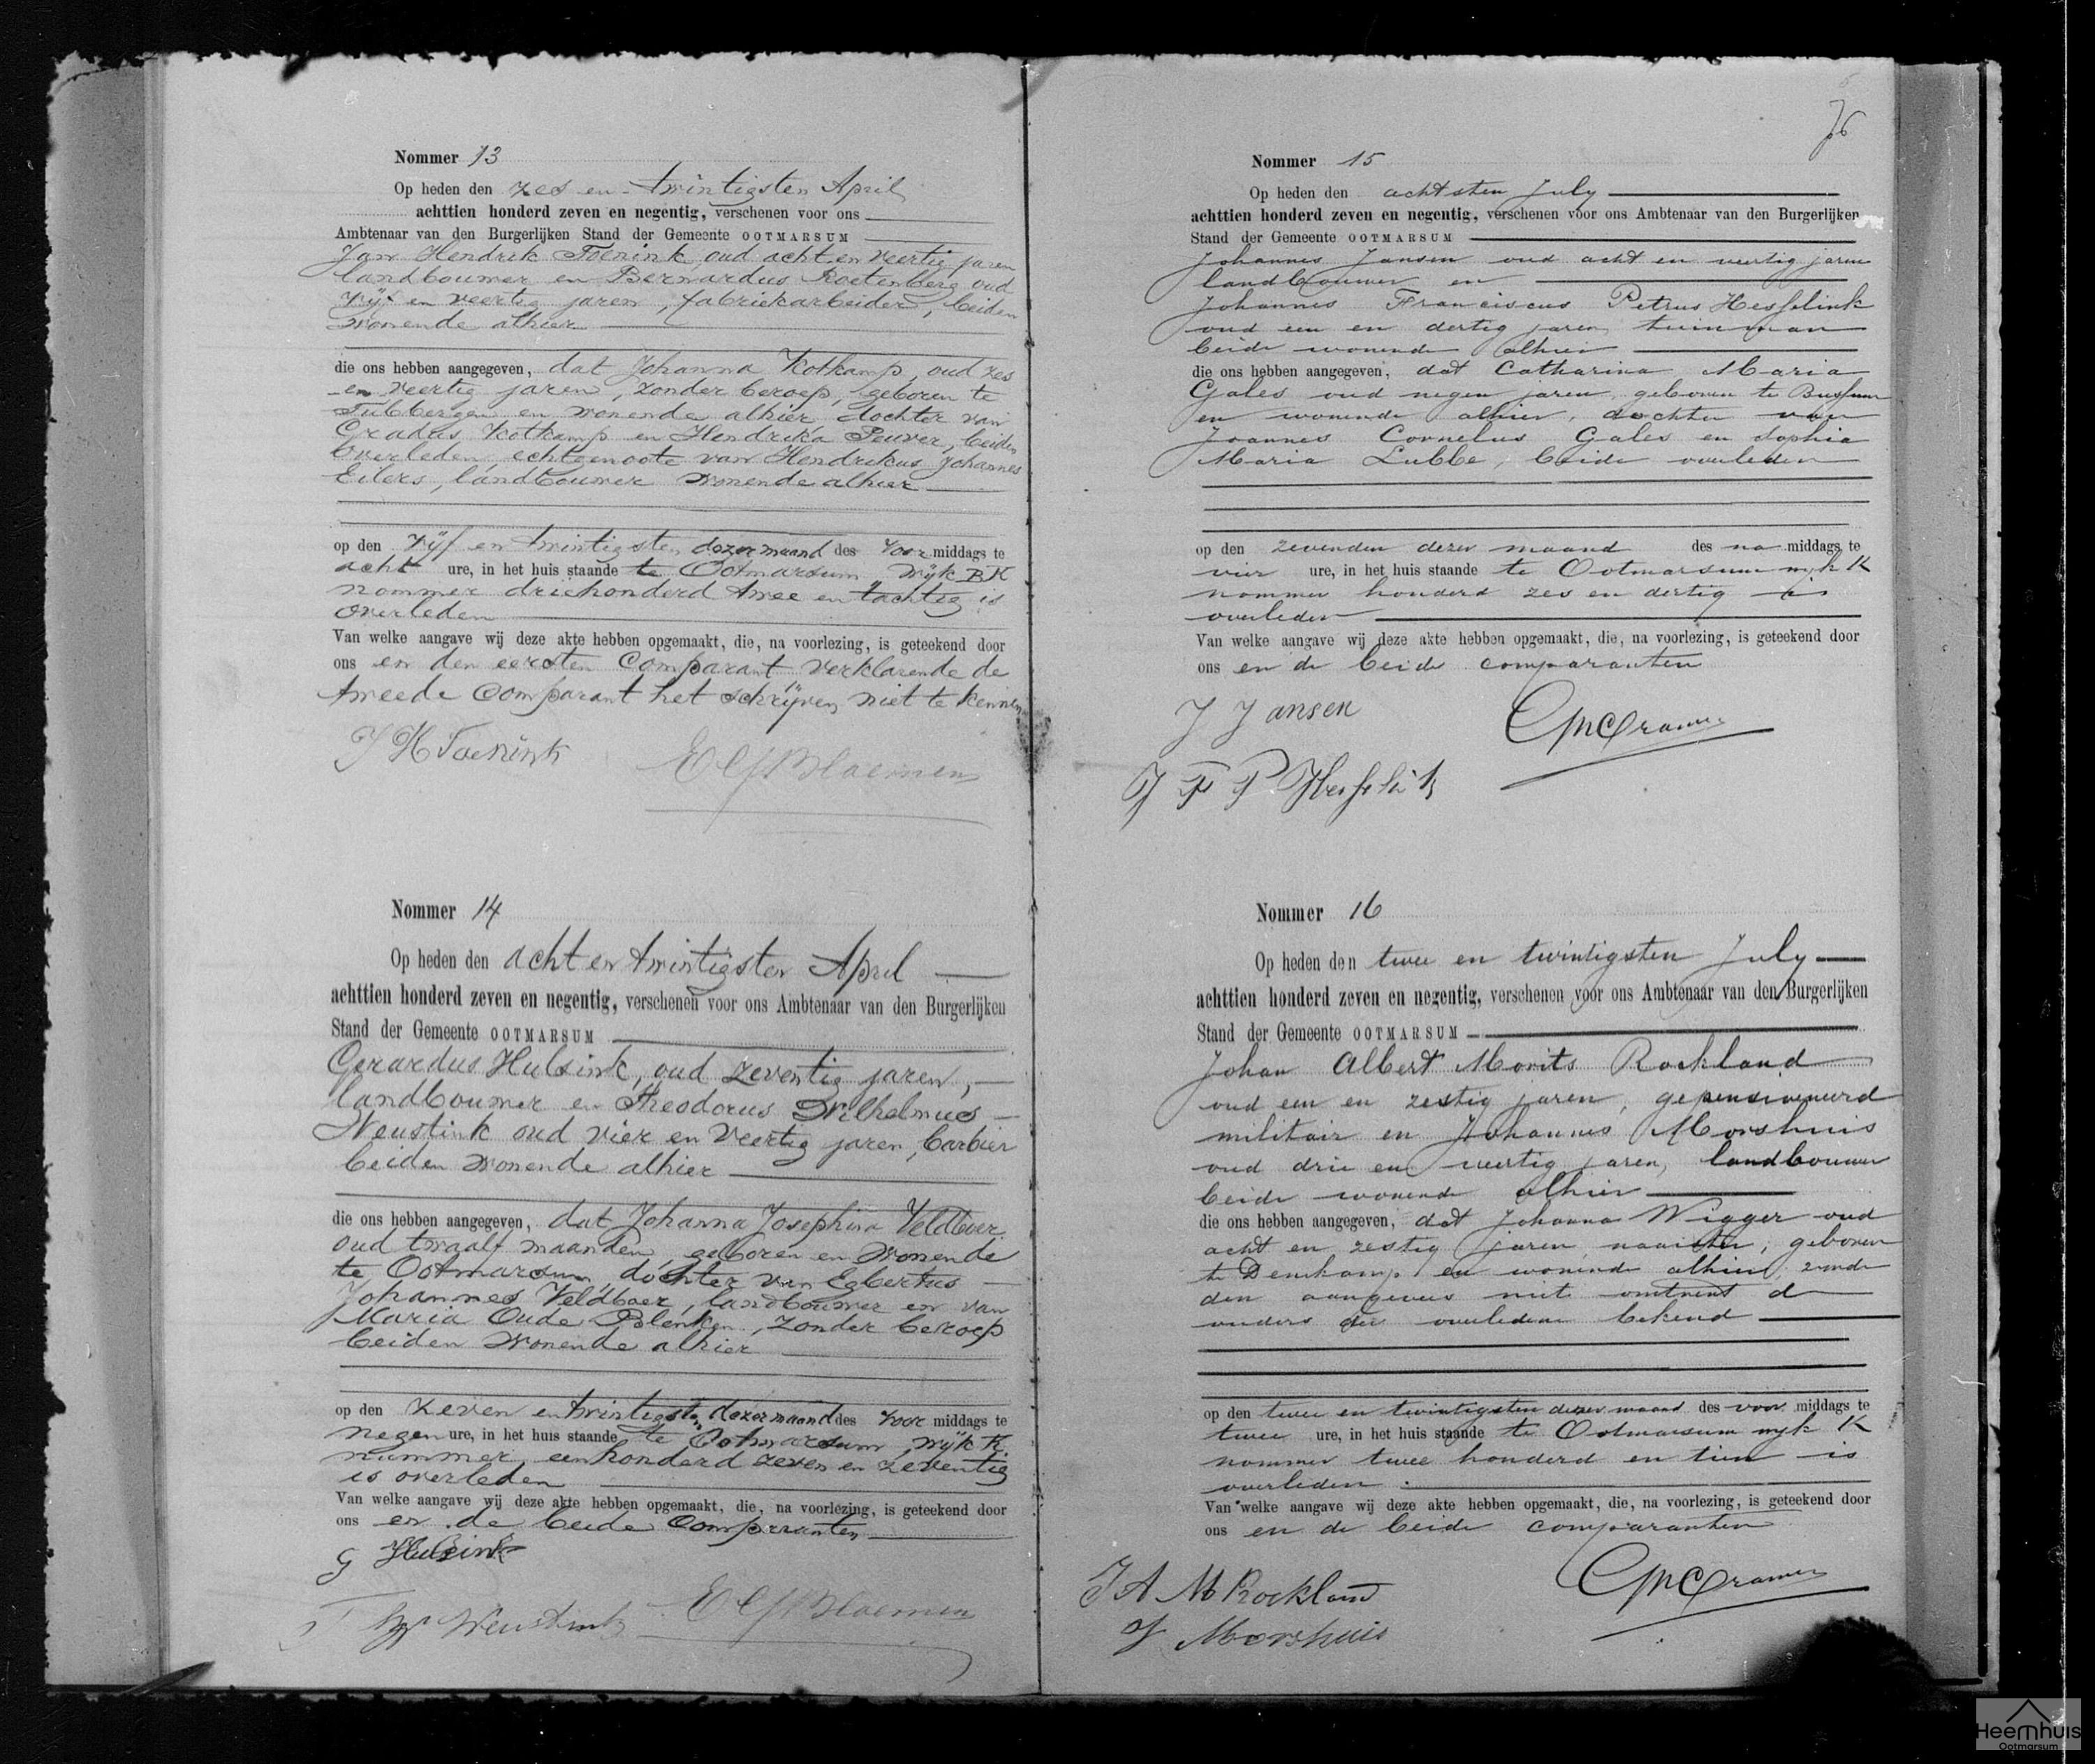 Nommer 13
Op heden den zes en twintigsten April
achttien honderd zeven en negentig, verschenen voor ons
Ambtenaar van den Burgerlijken Stand der Gemeente OOTMARSUM
Jan Hendrik Toenink, oud acht en veertig jaren
landbouwer en Bernardus Roetenberg oud
vijf en veertig jaren, fabriekarbeider, beiden
wonende alhier
die ons hebben aangegeven, dat Johanna Kotkamp, oud zes
en veertig jaren, zonder beroep, geboren te
Tubbergen en wonende alhier, dochter van
Gradus Kotkamp en Hendrika Peuver, beiden
overleden, echtgenoote van Hendrikus Johannes
Eilers, landbouwer wonende alhier
op den vijf en twintigsten dezer maand des voor middags te
acht ure, in het huis staande te Ootmarsum wijk BK
nommer driehonderd twee en tachtig is
overleden
Van welke aangave wij deze akte hebben opgemaakt, die, na voorlezing, is geteekend door
ons en den eersten Comparant verklarende de
tweede Comparant het schrijven niet te kennen
J H Toenink
Nommer 14
Op heden den acht en twintigsten April
achttien honderd zeven en negentig, verschenen voor ons Ambtenaar van den Burgerlijken
Stand der Gemeente OOTMARSUM
Gerardus Hulsink, oud zeventig jaren,
landbouwer en Theodorus Wilhelmus
Weustink oud vier en veertig jaren, barbier
beiden wonende alhier
die ons hebben aangegeven, dat Johanna Josephina Veldboer
oud twaalf maanden, geboren en wonende
te Ootmarsum, dochter van Egbertus
Johannes Veldboer, landbouwer en van
Maria Oude Polenken, zonder beroep
beiden wonende alhier
op den zeven en twintigsten dezer maand des voor middags te
negen ure, in het huis staande te Ootmarsum, wijk K.
nummer eenhonderd zeven en zeventig
is overleden
Van welke aangave wij deze akte hebben opgemaakt, die, na voorlezing, is geteekend door
ons en de beide Comparanten
G Hulsink
Weustink
76
Nommer 15
Op heden den achtsten July
achttien honderd zeven en negentig, verschenen voor ons Ambtenaar van den Burgerlijken
Stand der Gemeente OOTMARSUM
Johannes Jansen oud acht en veertig jaren
landbouwer en
Johannes Franciscus Petrus Hesselink
oud een en dertig jaren, tuinman
beide wonende alhier
die ons hebben aangegeven, dat Catharina Maria
Gales oud negen jaren, geboren te Bussum
en wonende alhier, dochter van
Joannes Cornelus Gales en Sophia
Maria Lubbe, beide overleden
op den zevenden dezer maand des na middags te
vier ure, in het huis staande te Ootmarsum wijk K
nommer honderd zes en dertig is
overleden
Van welke aangave wij deze akte hebben opgemaakt, die, na voorlezing, is geteekend door
ons en de beide comparanten
J Jansen
Cramer
J F P Hesselink
Nommer 16
Op heden den twee en twintigsten July
achttien honderd zeven en negentig, verschenen voor ons Ambtenaar van den Burgerlijken
Stand der Gemeente OOTMARSUM
Johan Albert Morits Rockland
oud een en zestig jaren, gepensioneerd
militair en Johannes Morshuis
oud drie en veertig jaren, landbouwer
beide wonende alhier
die ons hebben aangegeven, dat Johanna Wigger oud
acht en zestig jaren, naaister, geboren
te Denekamp en wonende alhier, zijnde
den aangevers niet omtrent d
ouders der overledene bekend
op den twee en twintigsten dezer maand des voor middags te
twee ure, in het huis staande te Ootmarsum wijk K
nommer twee honderd en tien is
overleden
Van welke aangave wij deze akte hebben opgemaakt, die, na voorlezing, is geteekend door
ons en de beide comparanten
J A M Rockland
Cramer
J Morshuis
Heemhuis
Ootmarsum